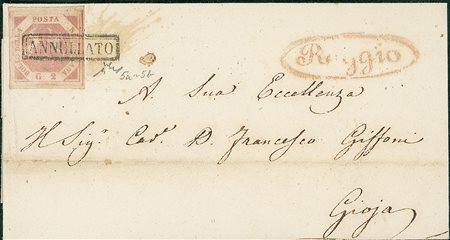 POSTA
ANNULLATO
G 2
Reggio
A Sua Eccellenza
Il Sigr. Cavr. D. Francesco Giffoni
Gioja